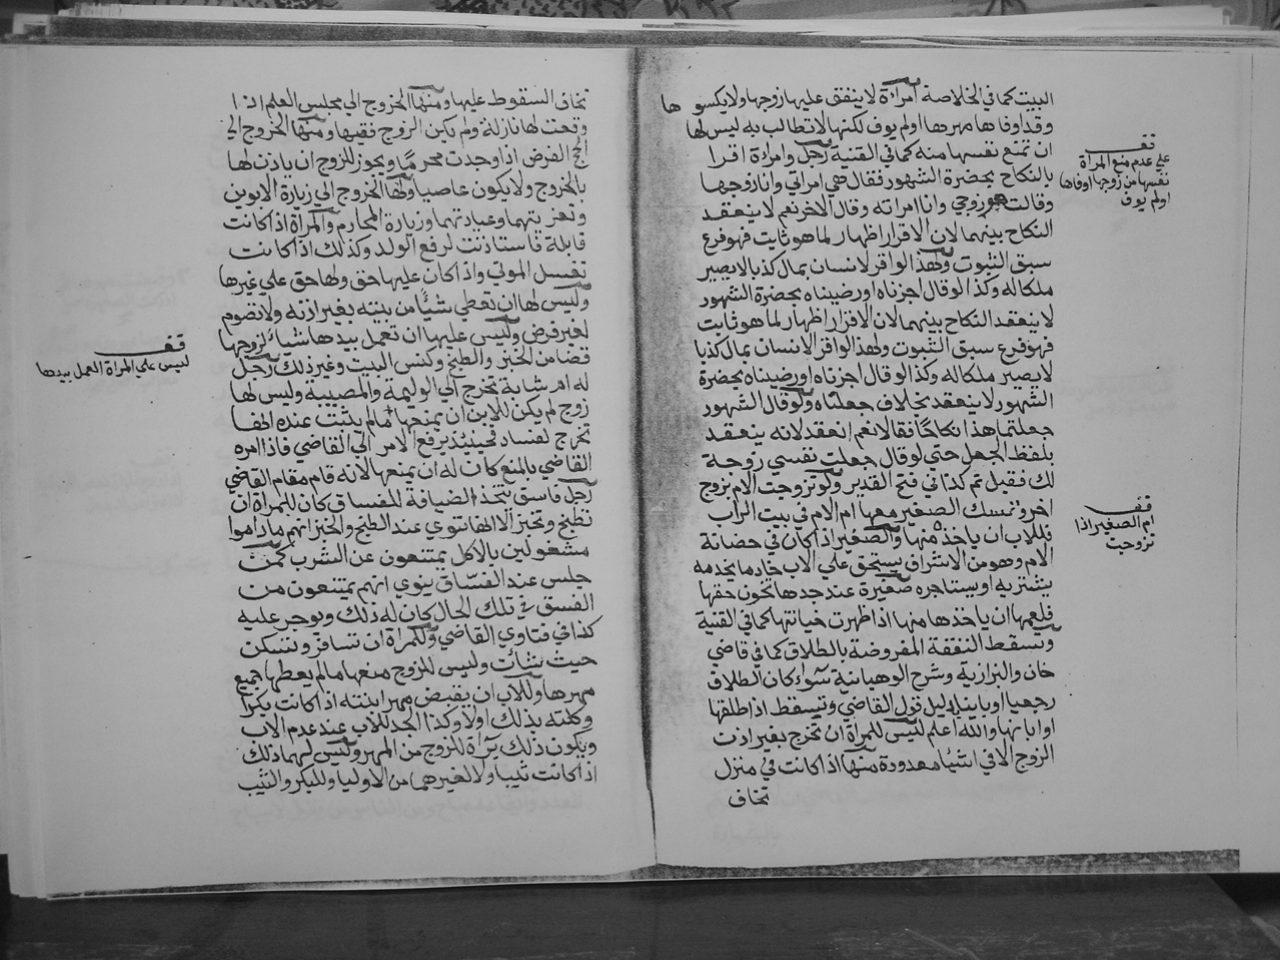 البيت كما في الخلاصة امراة لا ينفق عليها زوجها ولا يكسوها
وقد اوفاها مهرها او لم يوف لكنها لا تطالب به ليس لها
ان تمنع نفسها منه كما في القنية رجل وامراة اقرا
بالنكاح بحضرة الشهور فقال هي امراتي وانا زوجها
وقالت هو زوجي وانا امراته وقال الاخر نعم لا ينعقد
النكاح بينهما لان الاقرار اظهار لما هو ثابت فهو فرع
سبق الثبوت ولهذا لو اقر لانسان بمال كذبا لا يصير
ملكا له وكذا لو قال اجزناه او رضيناه بحضرة الشهور
لا ينعقد النكاح بينهما لان الاقرار اظهار لما هو ثابت
فهو فرع سبق الثبوت ولهذا لو اقر لانسان بمال كذبا
لا يصير ملكا له وكذا لو قال اجزناه او رضيناه بحضرة
الشهور لا ينعقد بخلاف جعلناه ولو قال الشهور
جعلتما هذا نكاحا فقالا نعم انعقد لانه ينعقد
بلفظ الجعل حتي لو قال جعلت نفسي زوجة
لك فقبل تم كذا في فتح القدير ولو تزوجت الام بزوج
اخر وتمسك الصغير معها ام الام في بيت الراب
فللاب ان ياخذ منها والصغير اذا كان في حضانة
الام وهو من الاشراف يستحق علي الاب خادما يخدمه
يشتريه او يستاجره صغيرة عند جدها تخون حقها
فلعمها ان ياخذها منها اذا ظهرت خيانتها كما في القنية
وتسقط النفقة المفروضة بالطلاق كما في قاضي
خان والبزازية وشرح الوهبانية سواء كان الطلاق
رجعيا او باينا بدليل قول القاضي وتسقط اذا طلقها
او ابانها والله اعلم ليس للمراة ان تخرج بغير اذن
الزوج الا في اشيا معدودة منها اذا كانت في منزل
تخاف
قف
علي عدم منع المراة
نفسها من زوجها اوفاها
او لم يوف
قف
ام الصغير اذا
تزوجت
تخاف السقوط عليها ومنها الخروج الي مجلس العلم اذا
وقعت لها نازلة ولم يكن الزوج فقيها ومنها الخروج الي
الحج الفرض اذا وجدت محرما ويجوز للزوج ان ياذن لها
بالخروج ولا يكون عاصيا ولها الخروج الي زيارة الابوين
وتعزيتهما وعيادتهما وزيارة المحارم والمراة اذا كانت
قابلة فاستاذنت لرفع الولد وكذلك اذا كانت
تغسل الموتي واذا كان عليها حق ولها حق علي غيرها
وليس لها ان تعطي شيئا من بيته بغير اذنه ولا تصوم
لغير فرض وليس عليها ان تعمل بيدها شيا لزوجها
قضا من الخبز والطبخ وكنس البيت وغير ذلك رجل
له ام شابة تخرج الي الوليمة والمصيبة وليس لها
زوج لم يكن للابن ان يمنعها ما لم يثبت عنده انها
تخرج لفساد فحينيذ يرفع الامر الي القاضي فاذا امره
القاضي بالمنع كان له ان يمنعها لانه قام مقام القاضي
رجل فاسق يتخذ الضيافة للفساق كان للمراة ان
تطبخ وتخبز الا انها تنوي عند الطبخ والخبز انهم ما داموا
مشغولين بالاكل يمتنعون عن الشرب كمن
جلس عند الفساق ينوي انهم يمتنعون من
الفسق في تلك الحال كان له ذلك ويوجر عليه
كذا في فتاوي القاضي وللمراة ان تسافر وتسكن
حيث شات وليس للزوج منعها ما لم يعطها جميع
مهرها وللاب ان يقبض مهر ابنته اذا كانت بكرا
وكلته بذلك اولا وكذا الجد للاب عند عدم الاب
ويكون ذلك براة للزوج من المهر وليس لهما ذلك
اذا كانت ثيبا ولا لغيرهما من الاوليا وللبكر والثيب
قف
ليس علي المراة العمل بيدها